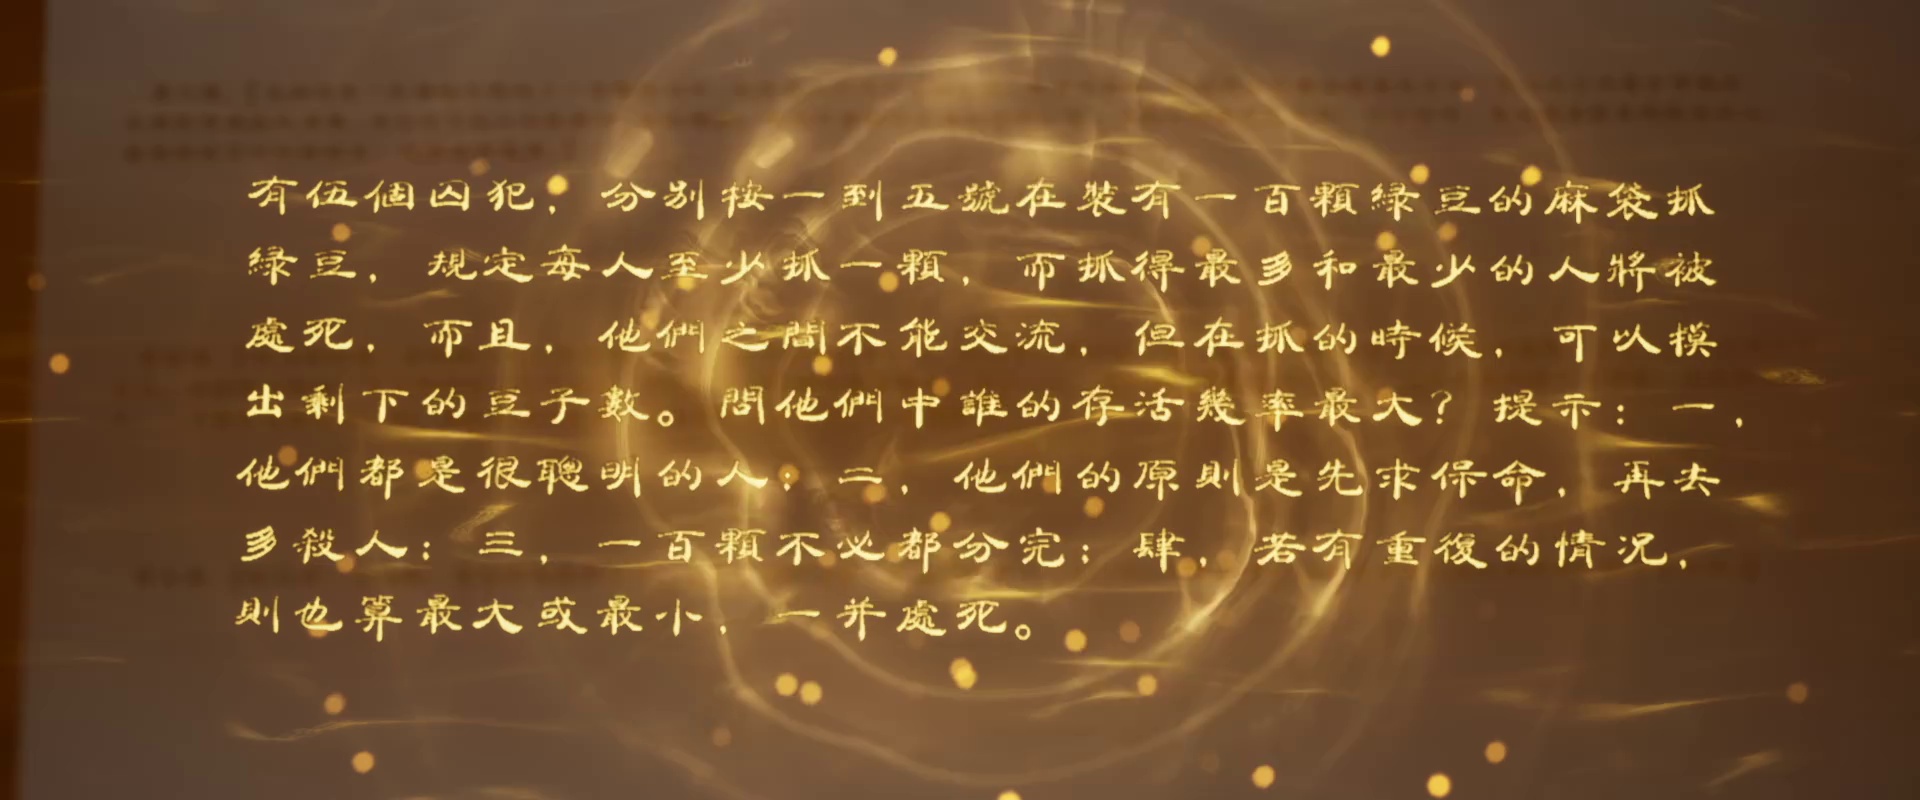 有伍個囚犯，分別按一到五號在裝有一百顆綠豆的麻袋抓
綠豆，規定每人至少抓一顆，而抓得最多和最少的人將被
處死，而且，他們之間不能交流，但在抓的時候，可以摸
出剩下的豆子數。問他們中誰的存活幾率最大？提示：一，
他們都是很聰明的人；二，他們的原則是先求保命，再去
多殺人；三，一百顆不必都分完；肆，若有重復的情況，
則也算最大或最小，一并處死。